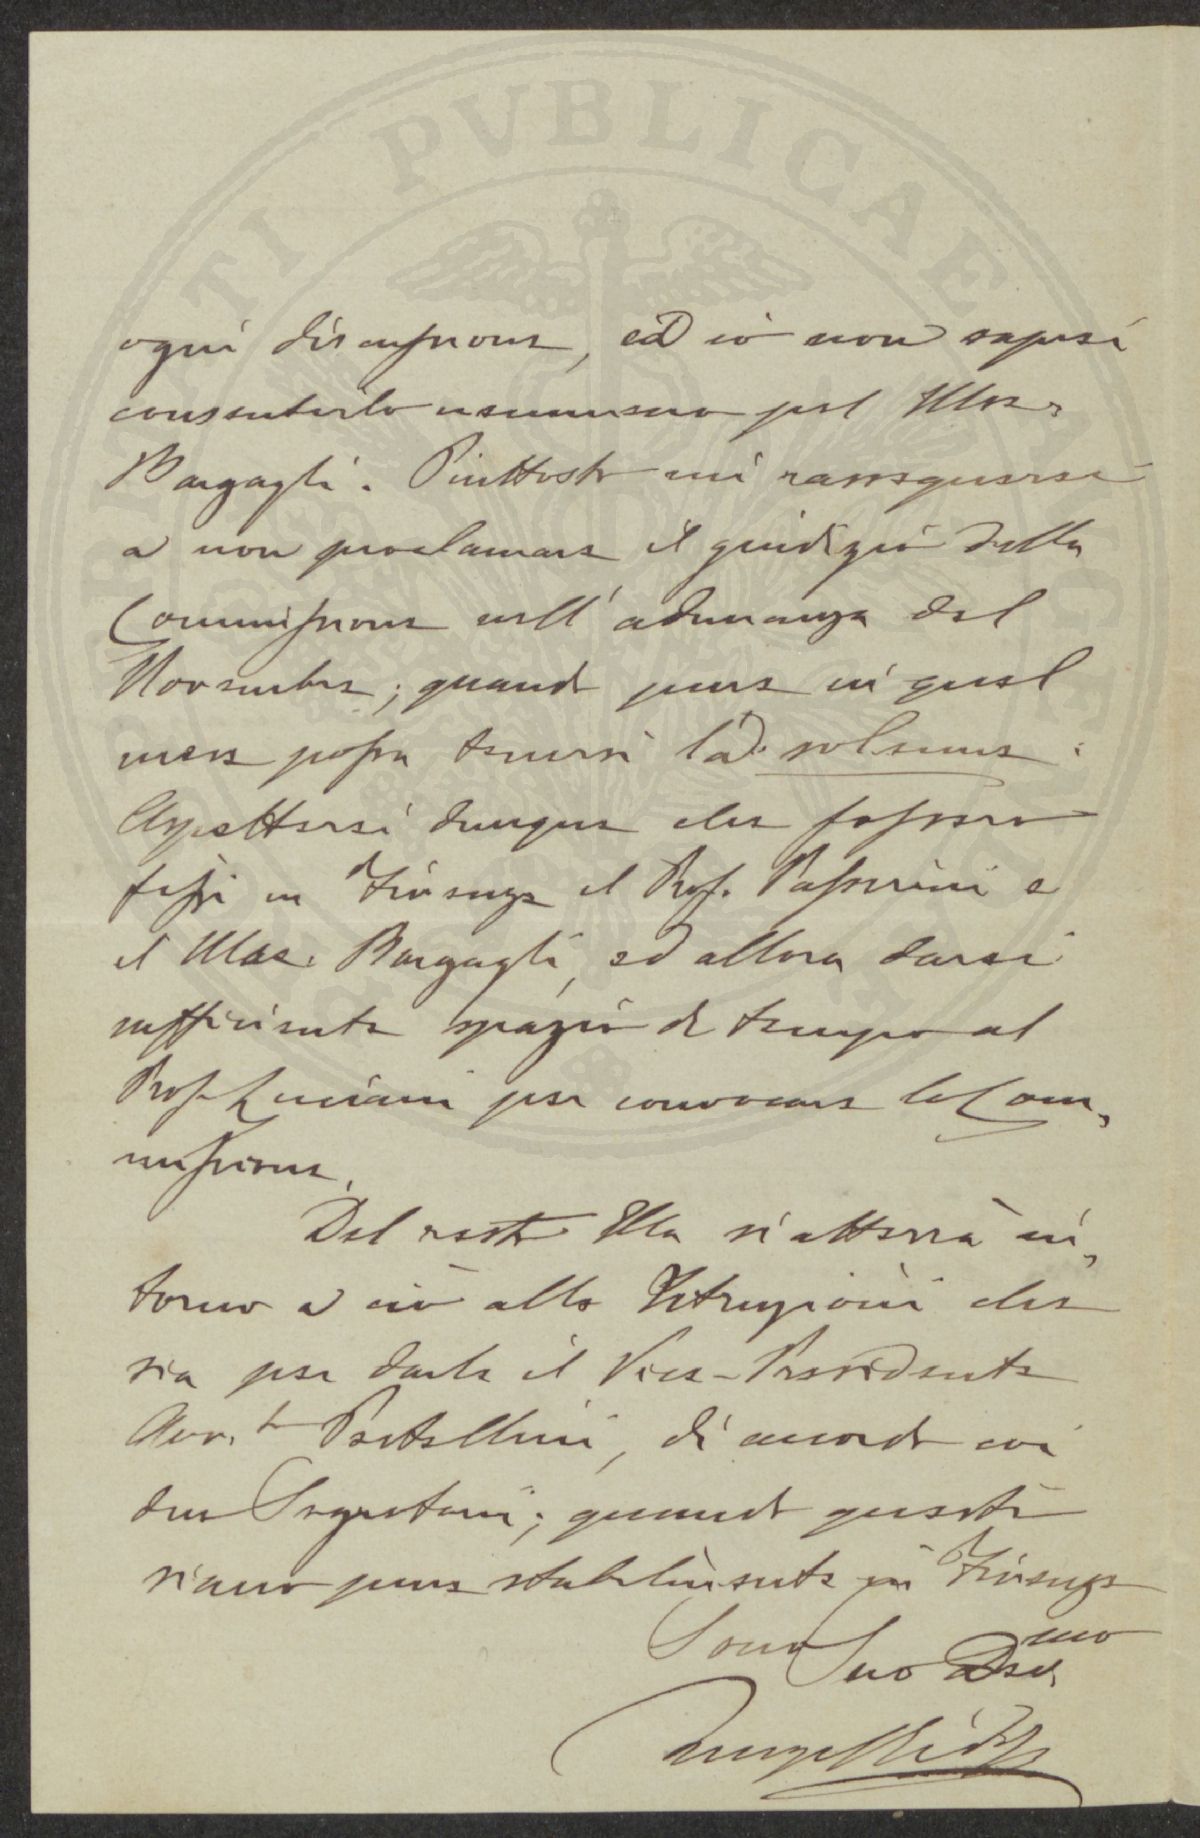 PERITI PVBLICAE
ogni discussione, ed io non saprei
consentirlo nemmeno pel March.
Bargagli. Piuttosto mi rassegnerei
a non proclamare il giudizio della
Commissione nell'adunanza del
Novembre; quando pure in quel
mese possa tenersi la solenne.
Aspetterei dunque che fossero
fissi in Firenze il Prof. Passerini e
il Mar. Bargagli, ed allora darei
sufficiente spazio di tempo al
Prof. Luciani per convocare la Com,
missione.
Del resto Ella si atterrà in,
torno a ciò alle Istruzioni che
sia per darle il Vice-Presidente
Avv.to Pestellini, di accordo coi
due Segretari; quando questi
siano pure stabilmente in Firenze
Sono Suo Dev.mo